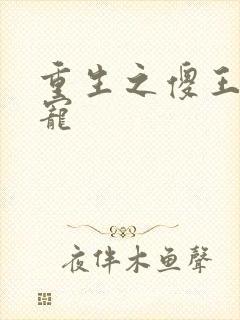 重生之傻王
寵
夜伴木鱼聲